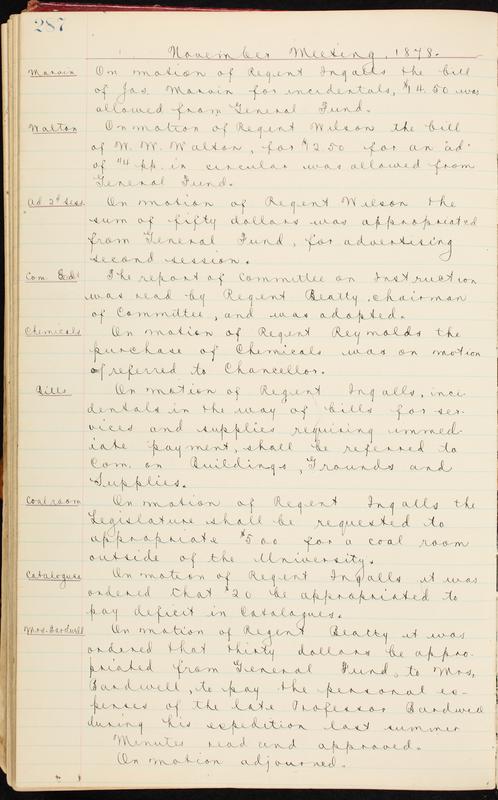 287
November Meeting, 1878.
Marvin On motion of Regent Ingalls the bill
of Jas. Marvin for incidentals, $14.50 was
allowed from General Fund.
Walton On motion of Regent Wilson the bill
of W. W. Walton, for $12 50 for an "ad"
of 1/4 pp. in circular was allowed from
General Fund.
Ad 2d Sess. On motion of Regent Wilson the
sum of fifty dollars was appropriated
from General Fund, for advertising
second session.
Com. The report of Committee on Instruction
was read by Regent Beatty, chairman
of Committee, and was adopted.
Chemicals On motion of Regent Reynolds the
purchase of Chemicals was on motion
of referred to Chancellor.
Bills On motion of Regent Ingalls, inci
dentals in the way of bills for ser-
vices and supplies requiring immed-
iate payment, shall be referred to
Com. on Buildings, Grounds and
Supplies.
Coal room On motion of Regent Ingalls the
Legislature shall be requested to
appropriate $500 for a coal room
outside of the University.
Catalogues On motion of Regent Ingalls it was
ordered that $20 be appropriated to
pay deficit in Catalogues.
Mrs. Bardwell On motion of Regent Beatty it was
ordered that thirty dollars be appro-
priated from General Fund, to Mrs.
Bardwell, to pay the personal ex-
penses of the late Professor Bardwell
during his expedition last summer
Minutes read and approved.
On motion adjourned.